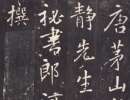 唐茅山
静先生
秘書郎
撰